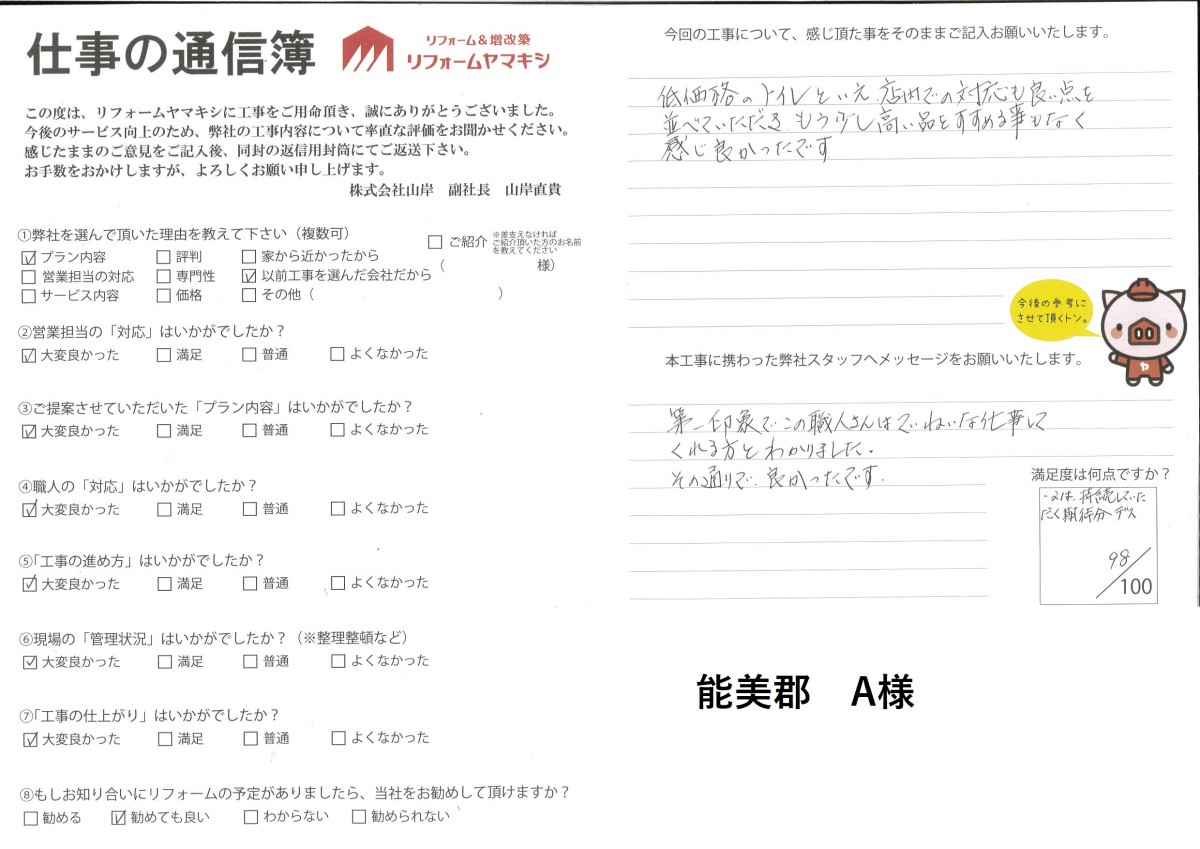 仕事の通信簿
リフォーム＆増改築
リフォームヤマキシ
この度は、リフォームヤマキシに工事をご用命頂き、誠にありがとうございました。
今後のサービス向上のため、弊社の工事内容について率直な評価をお聞かせください。
感じたままのご意見をご記入後、同封の返信用封筒にてご返送下さい。
お手数をおかけしますが、よろしくお願い申し上げます。
株式会社山岸 副社長 山岸直貴
①弊社を選んで頂いた理由を教えて下さい（複数可）
☑ プラン内容 □ 評判 □ 家から近かったから
□ 営業担当の対応 □ 専門性 ☑ 以前工事を選んだ会社だから
□ サービス内容 □ 価格 □ その他（ ）
□ ご紹介 ※差支えなければ
ご紹介頂いた方のお名前
を教えてください
（ 様）
②営業担当の「対応」はいかがでしたか？
☑ 大変良かった □ 満足 □ 普通 □ よくなかった
③ご提案させていただいた「プラン内容」はいかがでしたか？
☑ 大変良かった □ 満足 □ 普通 □ よくなかった
④職人の「対応」はいかがでしたか？
☑ 大変良かった □ 満足 □ 普通 □ よくなかった
⑤「工事の進め方」はいかがでしたか？
☑ 大変良かった □ 満足 □ 普通 □ よくなかった
⑥現場の「管理状況」はいかがでしたか？（※整理整頓など）
☑ 大変良かった □ 満足 □ 普通 □ よくなかった
⑦「工事の仕上がり」はいかがでしたか？
☑ 大変良かった □ 満足 □ 普通 □ よくなかった
⑧もしお知り合いにリフォームの予定がありましたら、当社をお勧めして頂けますか？
□ 勧める ☑ 勧めても良い □ わからない □ 勧められない
今回の工事について、感じ頂た事をそのままご記入お願いいたします。
低価格のトイレといえ、店内での対応も良い点を
並べていただき、もう少し高い品をすすめる事もなく
感じ良かったです
今後の参考に
させて頂くトン。
ヤ
本工事に携わった弊社スタッフへメッセージをお願いいたします。
第一印象で この職人さんはていねいな仕事して
くれる方と わかりました。
その通りで、良かったです。
満足度は何点ですか？
-2は、持続していた
だく期待分デス
98
/100
能美郡 A様